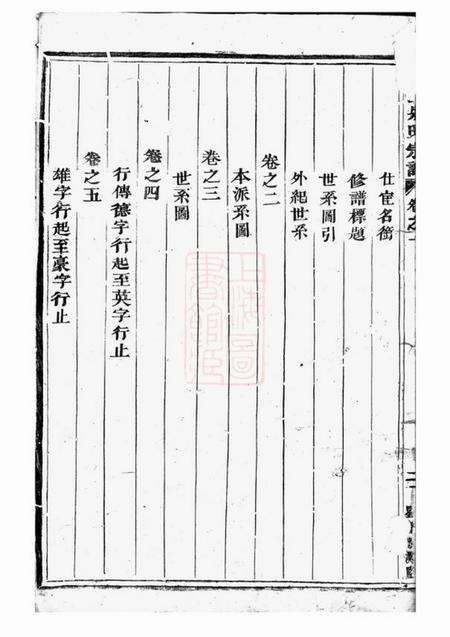 仕宦名銜
修譜標題
世系圖引
外紀世系
卷之二
本派系圖
卷之三
世系圖
卷之四
行傳德字行起至英字行止
卷之五
雄字行起至豪字行止
上海圖書館藏